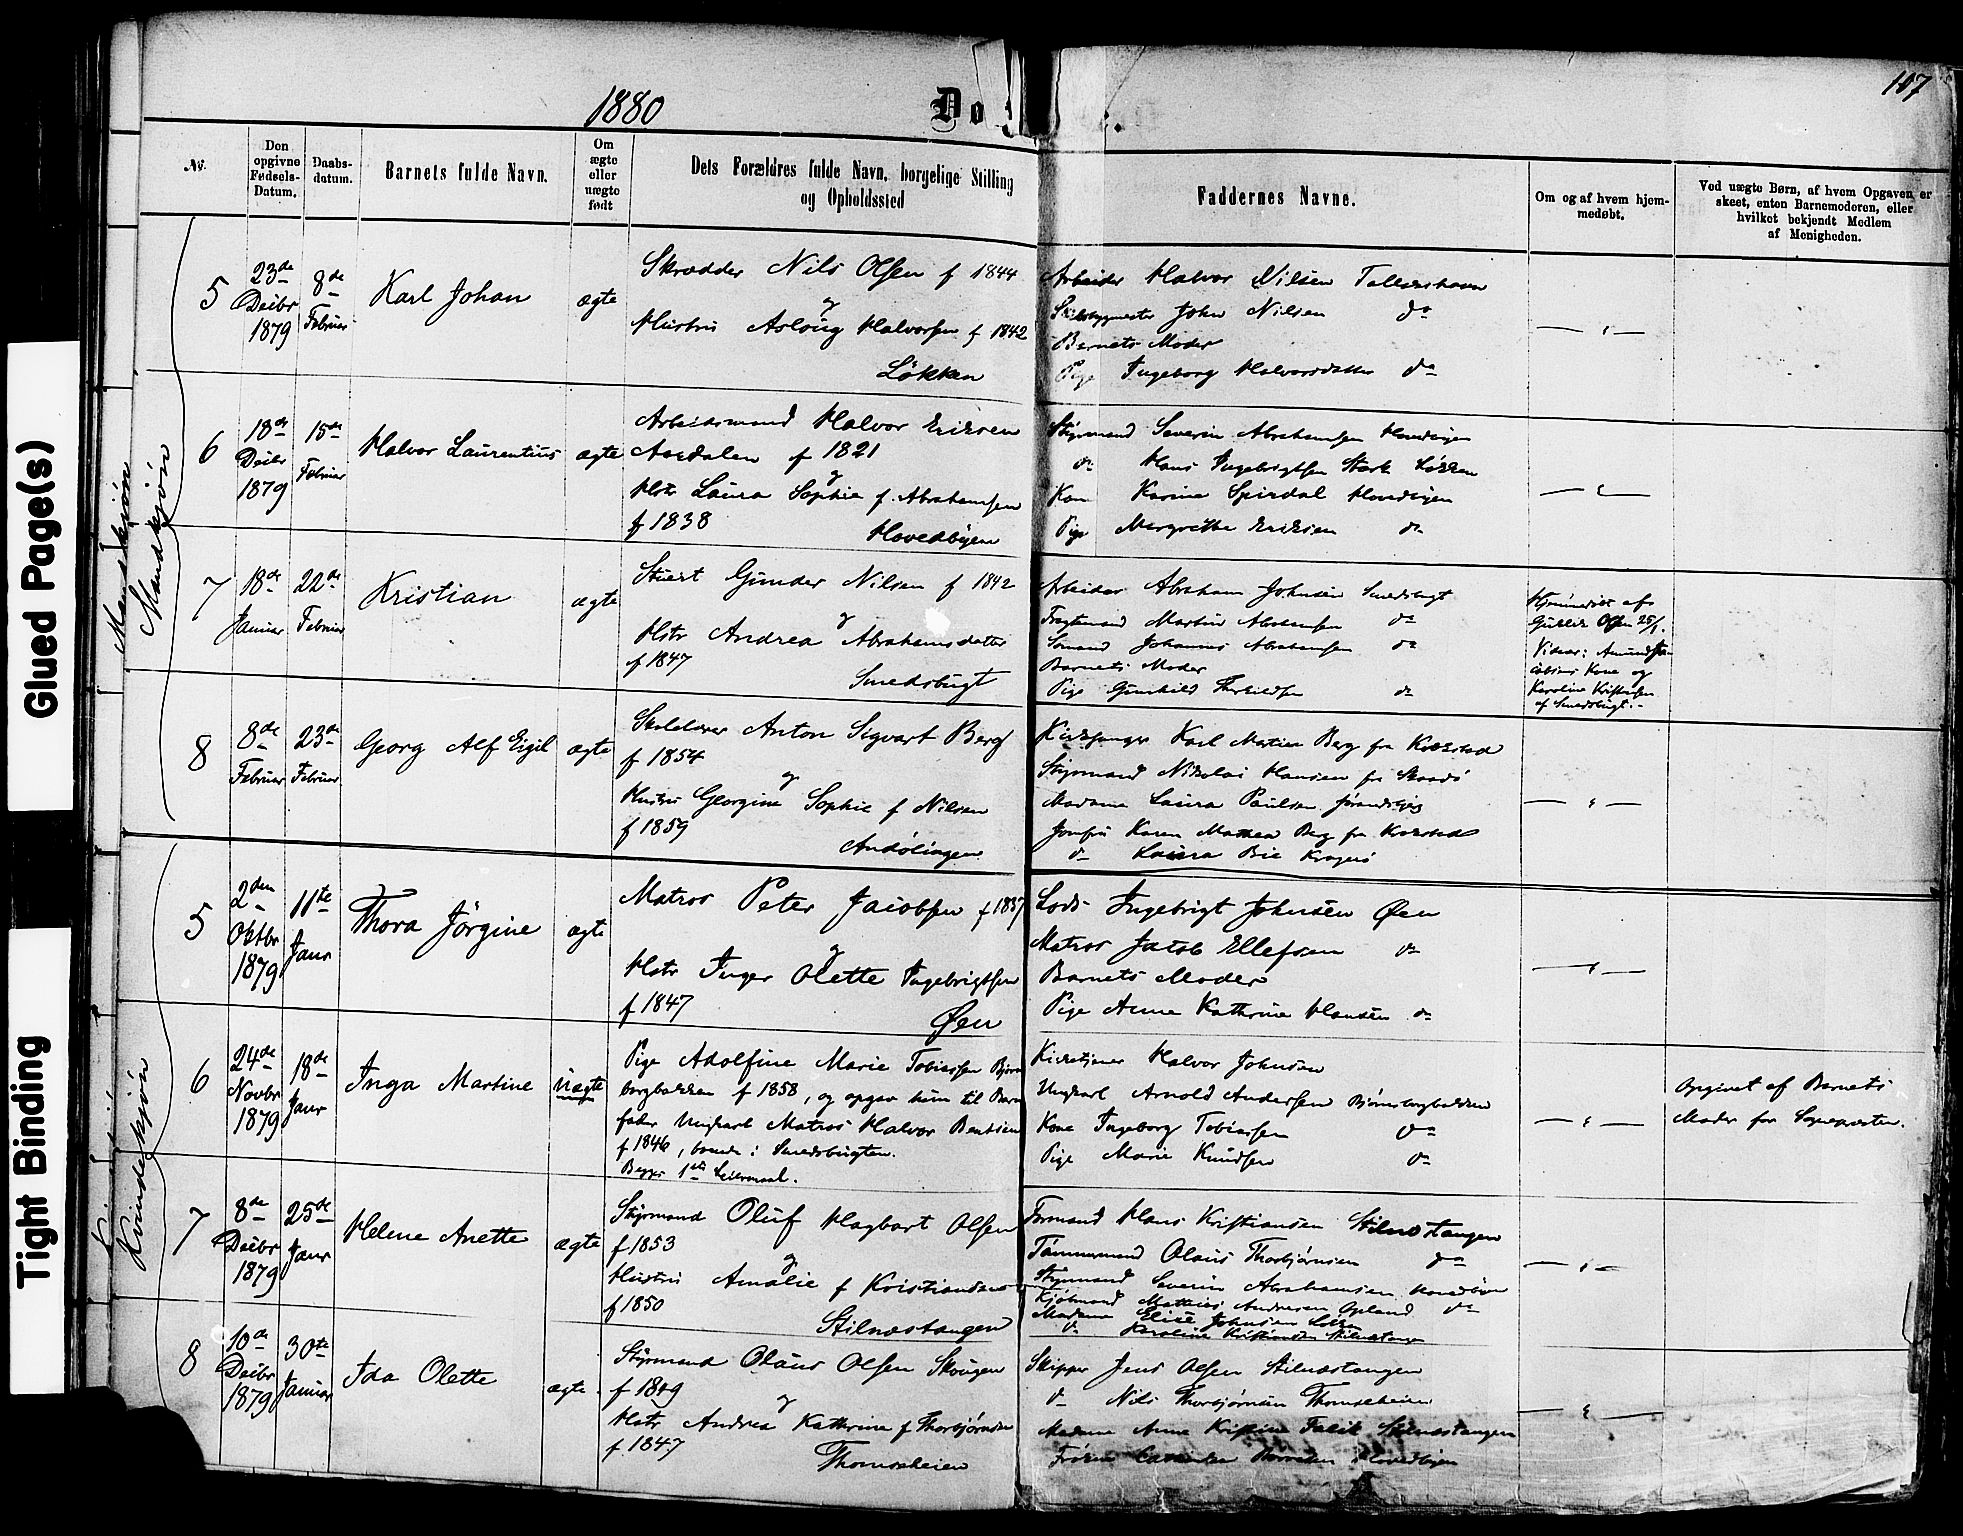 1880
Dø
107
No.
Den opgivne Fødsels-Datum.
Daabs-datum.
Barnets fulde Navn.
Om ægte eller uægte født
Dets Forældres fulde Navn, borgelige Stilling og Opholdssted
Faddernes Navne.
Om og af hvem hjem-medøbt.
Ved uægte Børn, af hvem Opgaven er skeet, enten Barnemoderen, eller hvilket bekjendt Medlem af Menigheden.
Glued Page(s)
Tight Binding
Mandkjøn
Mandkjøn
5
23de Decbr 1879
8de Februar
Karl Johan
ægte
Skrædder Nils Olsen f 1844
og
Hustru Asloug Halvorsen f 1842
Løkken
Arbeider Halvor Nilsen
John Nilsen do
Barnets Moder
Pige Ingeborg Halvorsdatter do
6
18de Decbr 1879
15de Februar
Halvor Laurentius
ægte
Arbeidsmand Halvor Eriksen
Aasdalen f 1821
og
Hstr Laura Sophie f. Abrahamsen
f 1838
Hovedbyen
Styrmand Severin Abrahamsen Hovedbyen
do Hans Ingebrigtsen Stark Løkken
Kone Karine Spirdal Hovedbyen
Pige Margrethe Eriksen do
7
18de Januar
22de Februar
Kristian
ægte
Stuert Gunder Nilsen f 1842
og
Hstr Andrea Abrahamsdatter
f 1847
Smedsbugt
Arbeider Abraham Johnsen Smedsbugt
Fragtemand Martin Abrahamsen do
Sømand Johannes Abrahamsen do
Barnets Moder
Pige Gunhild Therkildsen do
Hjemmedøbt af
Olsen 25/1.
Vidner: Amund Ja-
cobsens Kone og
Karoline Kristensen
af Smedsbugt.
8
8de Februar
23de Februar
Georg Alf Eigil
ægte
Skolelærer Anton Sigvart Berg
f 1854
og
Hustru Georgine Sophie f Nilsen
f 1859
Kirkesanger Karl Martin Berg fra
Styrmand Nikolai Hansen fra Skaadø
Madame Laura Paulsen
Jomfru Karen Mathea Berg fra
do Laura Bie Kragerø
Kvindekjøn
5
2den Oktbr 1879
11te Janr
Thora Jörgine
ægte
Matros Peter Jacobsen f 1837
og
Hstr Inger Olette Ingebrigtsen
f 1847
Øen
Lods Ingebrigt Johnsen Øen
Matros Jacob Ellefsen do
Barnets Moder
Pige Anne Kathrine Hansen do
6
24de Novbr 1879
18de Janr
Inga Martine
Uægte
Pige Adolfine Marie Tobiassen Bjørns
borgbakken f 1858, og opgav hun til Barne
fader Ungkarl Matros Halvor Bentsen
f 1846, boende i Smedsbugten.
Begges 1ste Leiermaal.
Kirketjener Halvor Johnsen
Ungkarl Arnold Andersen Bjørnsborgbakken
Kone Ingeborg Tobiassen do
Pige Marie Knudsen do
Opgivet af Barnets
Moder for Sognepresten.
7
8de Decbr 1879
25de Janr
Helene Anette
ægte
Styrmand Oluf Hagbart Olsen
f 1853
og
Hustru Amalie f Kristiansen
f 1850
Stilnæstangen
Formand Hans Kristiansen Stilnæstangen
Tømmermand Olaus Thorbjørnsen do
Styrmand Severin Abrahamsen Hovedbyen
Kjøbmand Mathias Andresen do
Madame Elise Johnsen Løkken
do Karoline Kristiansen Stilnæstangen
8
10de Decbr 1879
30te Januar
Ida Olette
ægte
Styrmand Olaus Olsen Skougen
og
Hstr Andrea Kathrine f Thorbjørnsen
f. 1847
Thomesheien
Skipper Jens Olsen Stilnæstangen
do Nils Thorbjørnsen Thomesheien
Madame Anne Kristine Falck Stilnæstangen
Frøken Hovedbyen